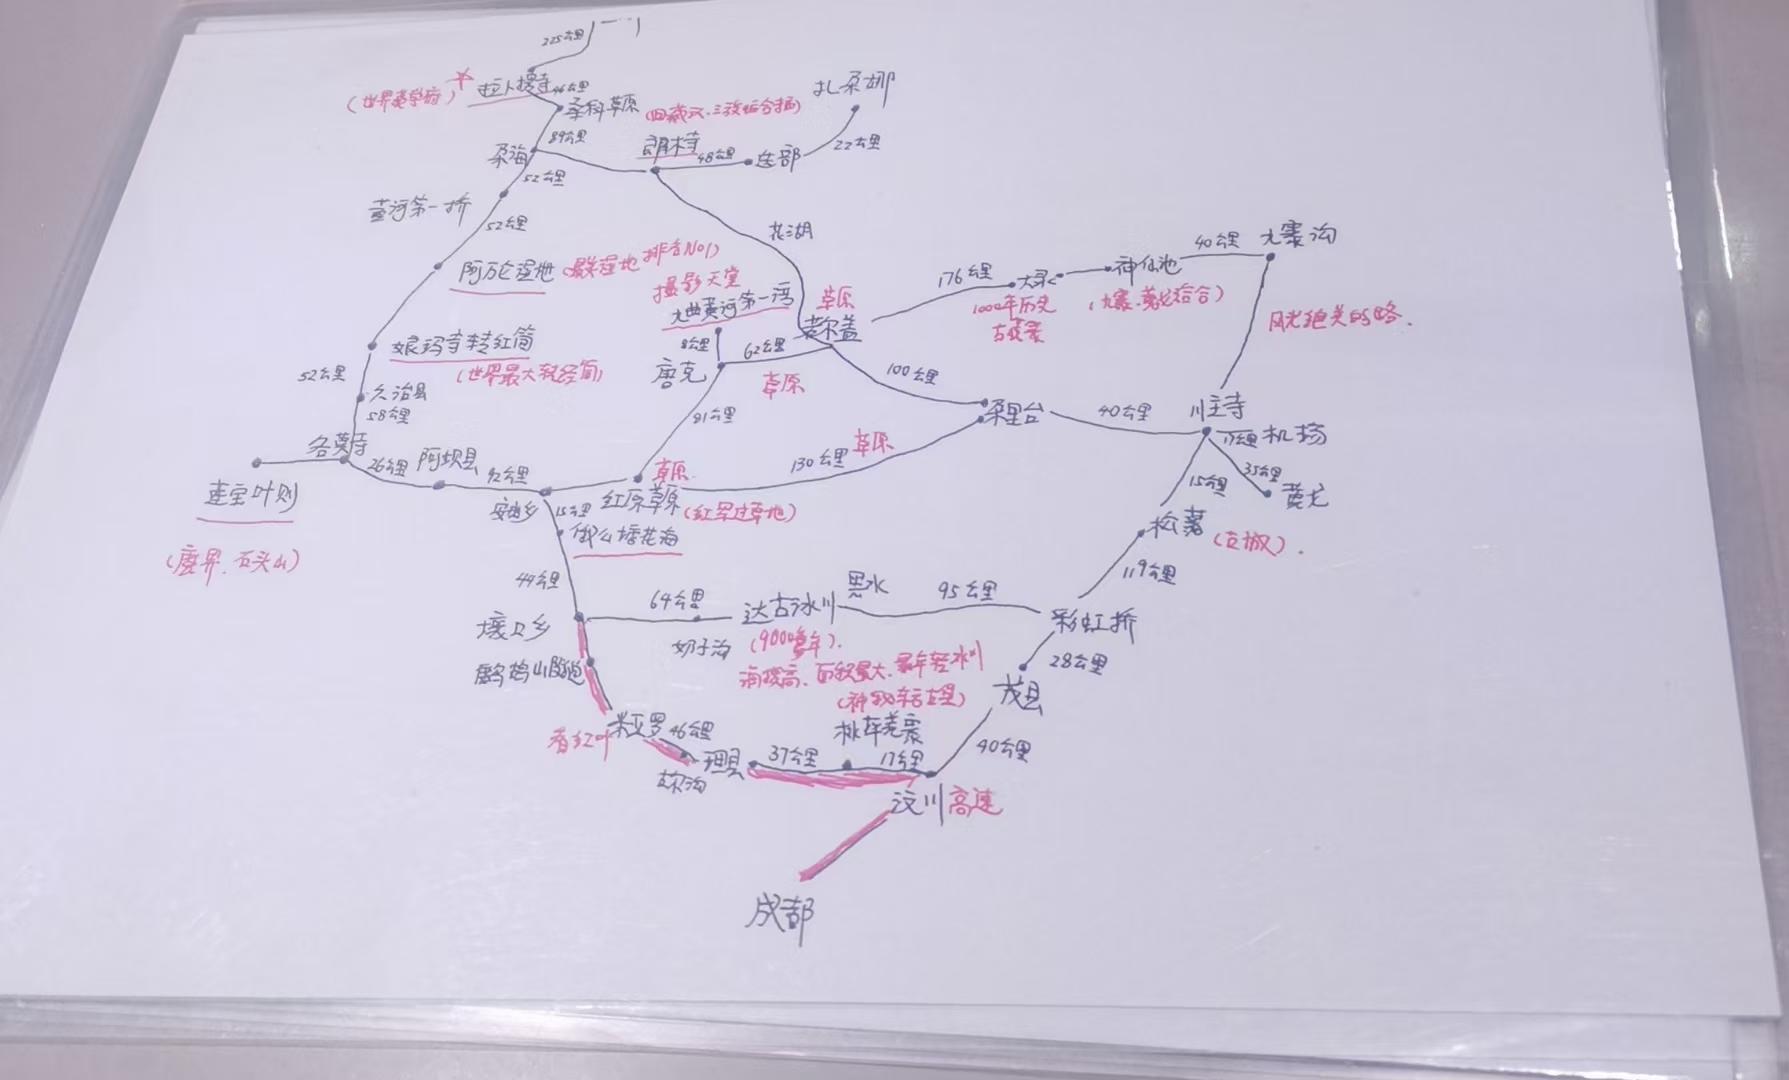 225公里
拉卜楞寺
46公里
(世界
桑科草原
89公里
扎尕那
尕海
郎木寺
48公里
迭部
22公里
52公里
黄河第一桥
52公里
花湖
阿万仓湿地
(最美湿地 排名No1)
摄影天堂
九曲黄河第一湾
草原
若尔盖
176公里
大录
神仙池
40公里
九寨沟
1000年历史
古藏寨
(九寨、黄龙结合)
风光绝美的路.
娘玛寺转经筒
(世界最大转经筒)
8公里
62公里
唐克
草原
100公里
52公里
久治县
58公里
81公里
尕里台
40公里
川主寺
机场
各莫寺
26公里
阿坝县
92公里
草原
130公里
草原
35公里
黄龙
15公里
莲宝叶则
安曲乡
15公里
红原草原
(红军过草地)
俄么塘花海
松潘
(古城).
(魔界、石头山)
44公里
119公里
壤口乡
64公里
达古冰川
黑水
95公里
彩虹桥
奶子沟
28公里
鹧鸪山隧道
海拔高、面积最大、最年轻冰川
(神秘东古里)
茂县
看红叶
米亚罗
46公里
理县
37公里
桃坪羌寨
17公里
40公里
汶川
高速
成都